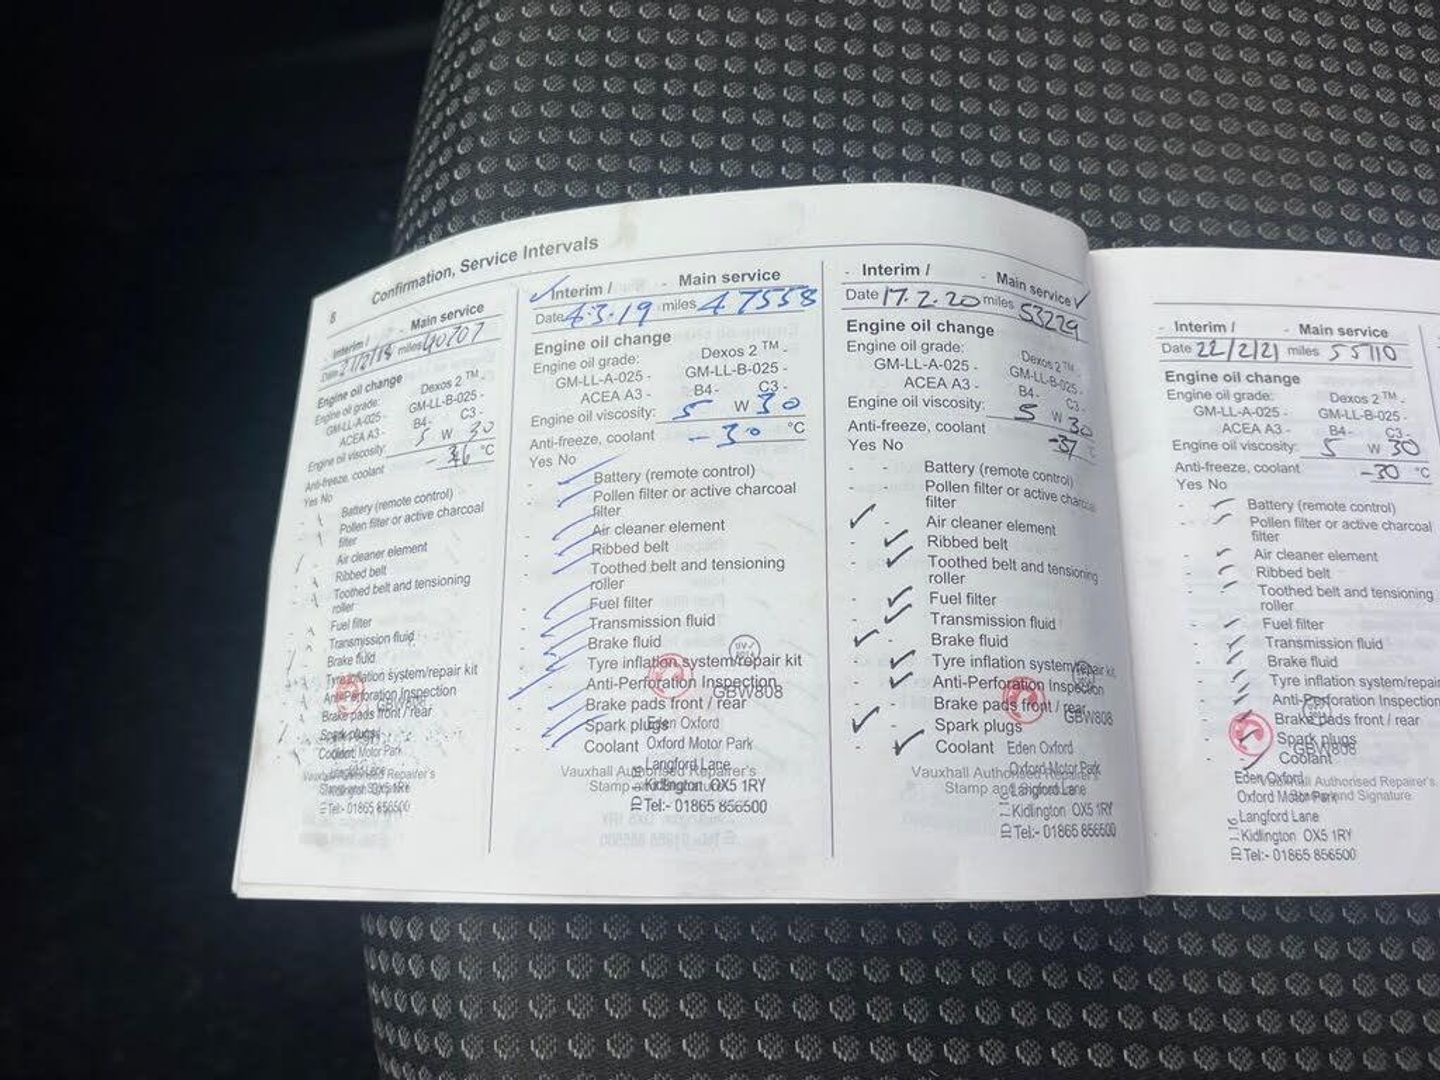 8
Confirmation, Service Intervals
Interim / - Main service
Date 21/2/18 miles 40707
Engine oil change
Engine oil grade: Dexos 2 ™ -
GM-LL-A-025 - GM-LL-B-025 -
ACEA A3 - B4- C3 -
Engine oil viscosity: 5 W 30
Anti-freeze, coolant °C
Yes No
Battery (remote control)
Pollen filter or active charcoal
filter
Air cleaner element
Ribbed belt
Toothed belt and tensioning
roller
Fuel filter
Transmission fluid
Brake fluid
Tyre inflation system/repair kit
Anti-Perforation Inspection
GBW808
Brake pads front / rear
Spark plugs
Coolant
Motor Park
Vauxhall Authorised Repairer's
Langford Lane
Kidlington OX5 1RY
Tel:- 01865 856500
Interim / - Main service
Date 4.3.19 miles 47558
Engine oil change
Engine oil grade: Dexos 2 ™ -
GM-LL-A-025 - GM-LL-B-025 -
ACEA A3 - B4- C3 -
Engine oil viscosity: 5 W 30
Anti-freeze, coolant -30 °C
Yes No
Battery (remote control)
Pollen filter or active charcoal
filter
Air cleaner element
Ribbed belt
Toothed belt and tensioning
roller
Fuel filter
Transmission fluid
Brake fluid
Tyre inflation system/repair kit
Anti-Perforation Inspection
GBW808
Brake pads front / rear
Spark plugs
Eden Oxford
Coolant
Oxford Motor Park
Langford Lane
Vauxhall Authorised Repairer's
Stamp and Signature
Kidlington OX5 1RY
Tel:- 01865 856500
- Interim / - Main service
Date 17.2.20 miles 53229
Engine oil change
Engine oil grade: Dexos 2 ™ -
GM-LL-A-025 - GM-LL-B-025 -
ACEA A3 - B4- C3 -
Engine oil viscosity: 5 W 30
Anti-freeze, coolant -37 °C
Yes No
Battery (remote control)
Pollen filter or active charcoal
filter
Air cleaner element
Ribbed belt
Toothed belt and tensioning
roller
Fuel filter
Transmission fluid
Brake fluid
Tyre inflation system/repair kit
Anti-Perforation Inspection
Brake pads front / rear
GBW808
Spark plugs
Coolant
Eden Oxford
Oxford Motor Park
Vauxhall Authorised Repairer's
Stamp and Signature
Langford Lane
Kidlington OX5 1RY
Tel:- 01865 856500
- Interim / - Main service
Date 22/2/21 miles 55110
Engine oil change
Engine oil grade: Dexos 2 ™ -
GM-LL-A-025 - GM-LL-B-025 -
ACEA A3 - B4- C3 -
Engine oil viscosity: 5 W 30
Anti-freeze, coolant -30 °C
Yes No
Battery (remote control)
Pollen filter or active charcoal
filter
Air cleaner element
Ribbed belt
Toothed belt and tensioning
roller
Fuel filter
Transmission fluid
Brake fluid
Tyre inflation system/repair
Anti-Perforation Inspection
Brake pads front / rear
Spark plugs
GBW808
Coolant
Eden Oxford
Vauxhall Authorised Repairer's
Oxford Motor Park
Stamp and Signature
Langford Lane
Kidlington OX5 1RY
Tel:- 01865 856500